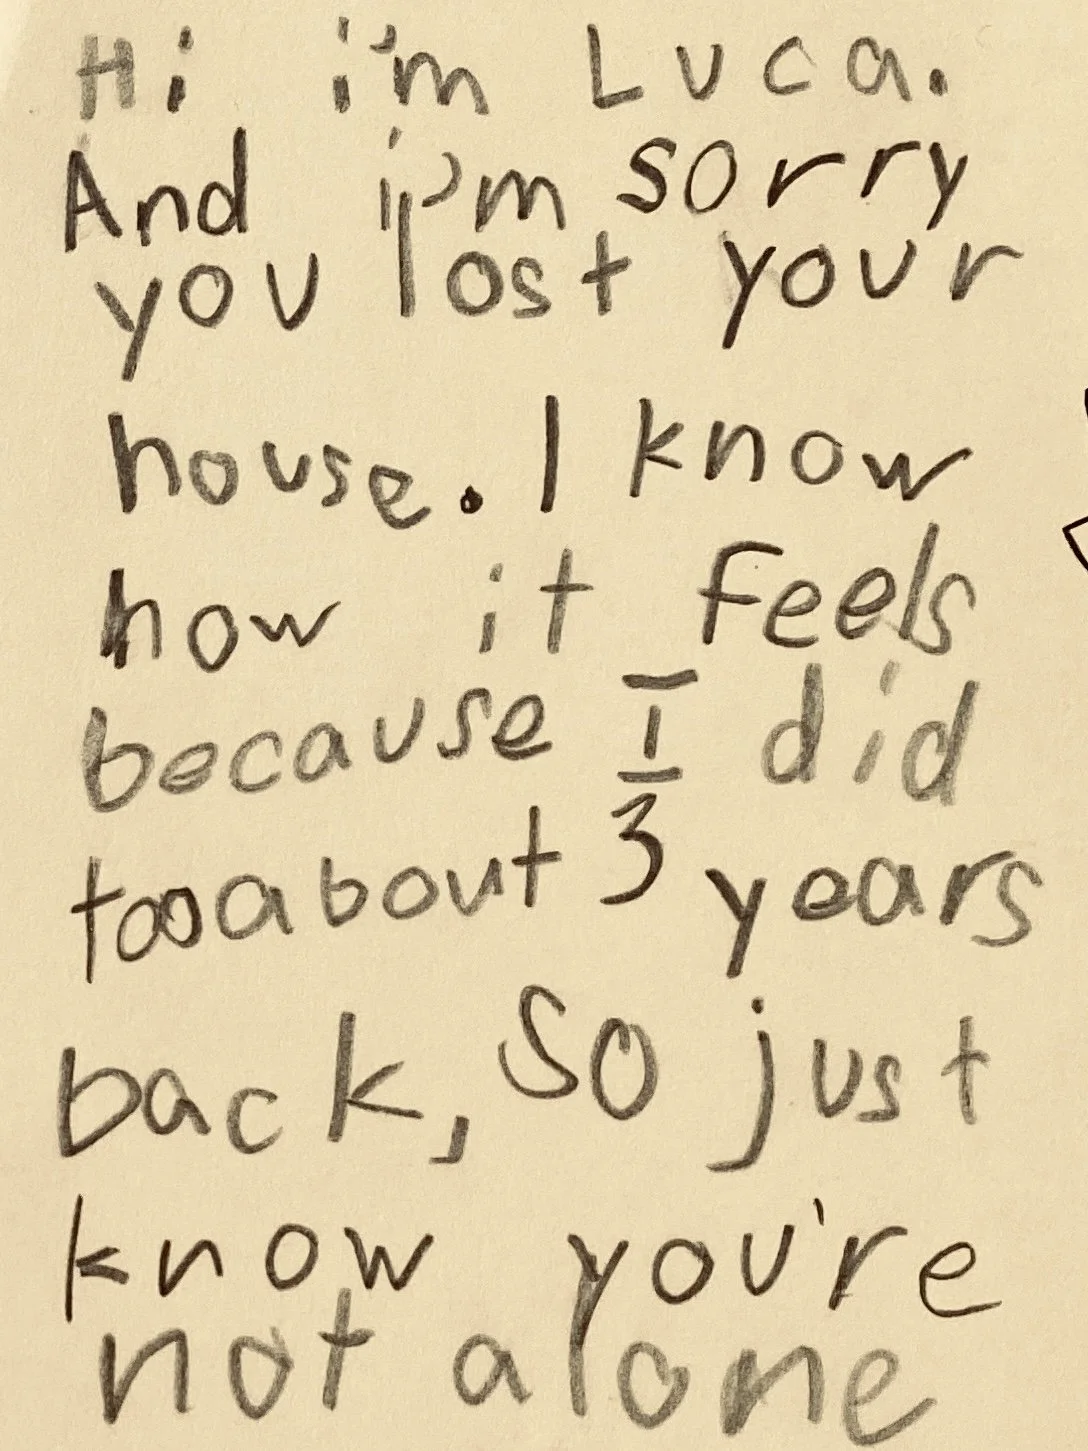 Hi i'm Luca.
And i'm sorry
you lost your
house. I know
how it feels
because I did
too about 3 years
back, So just
know you're
not alone